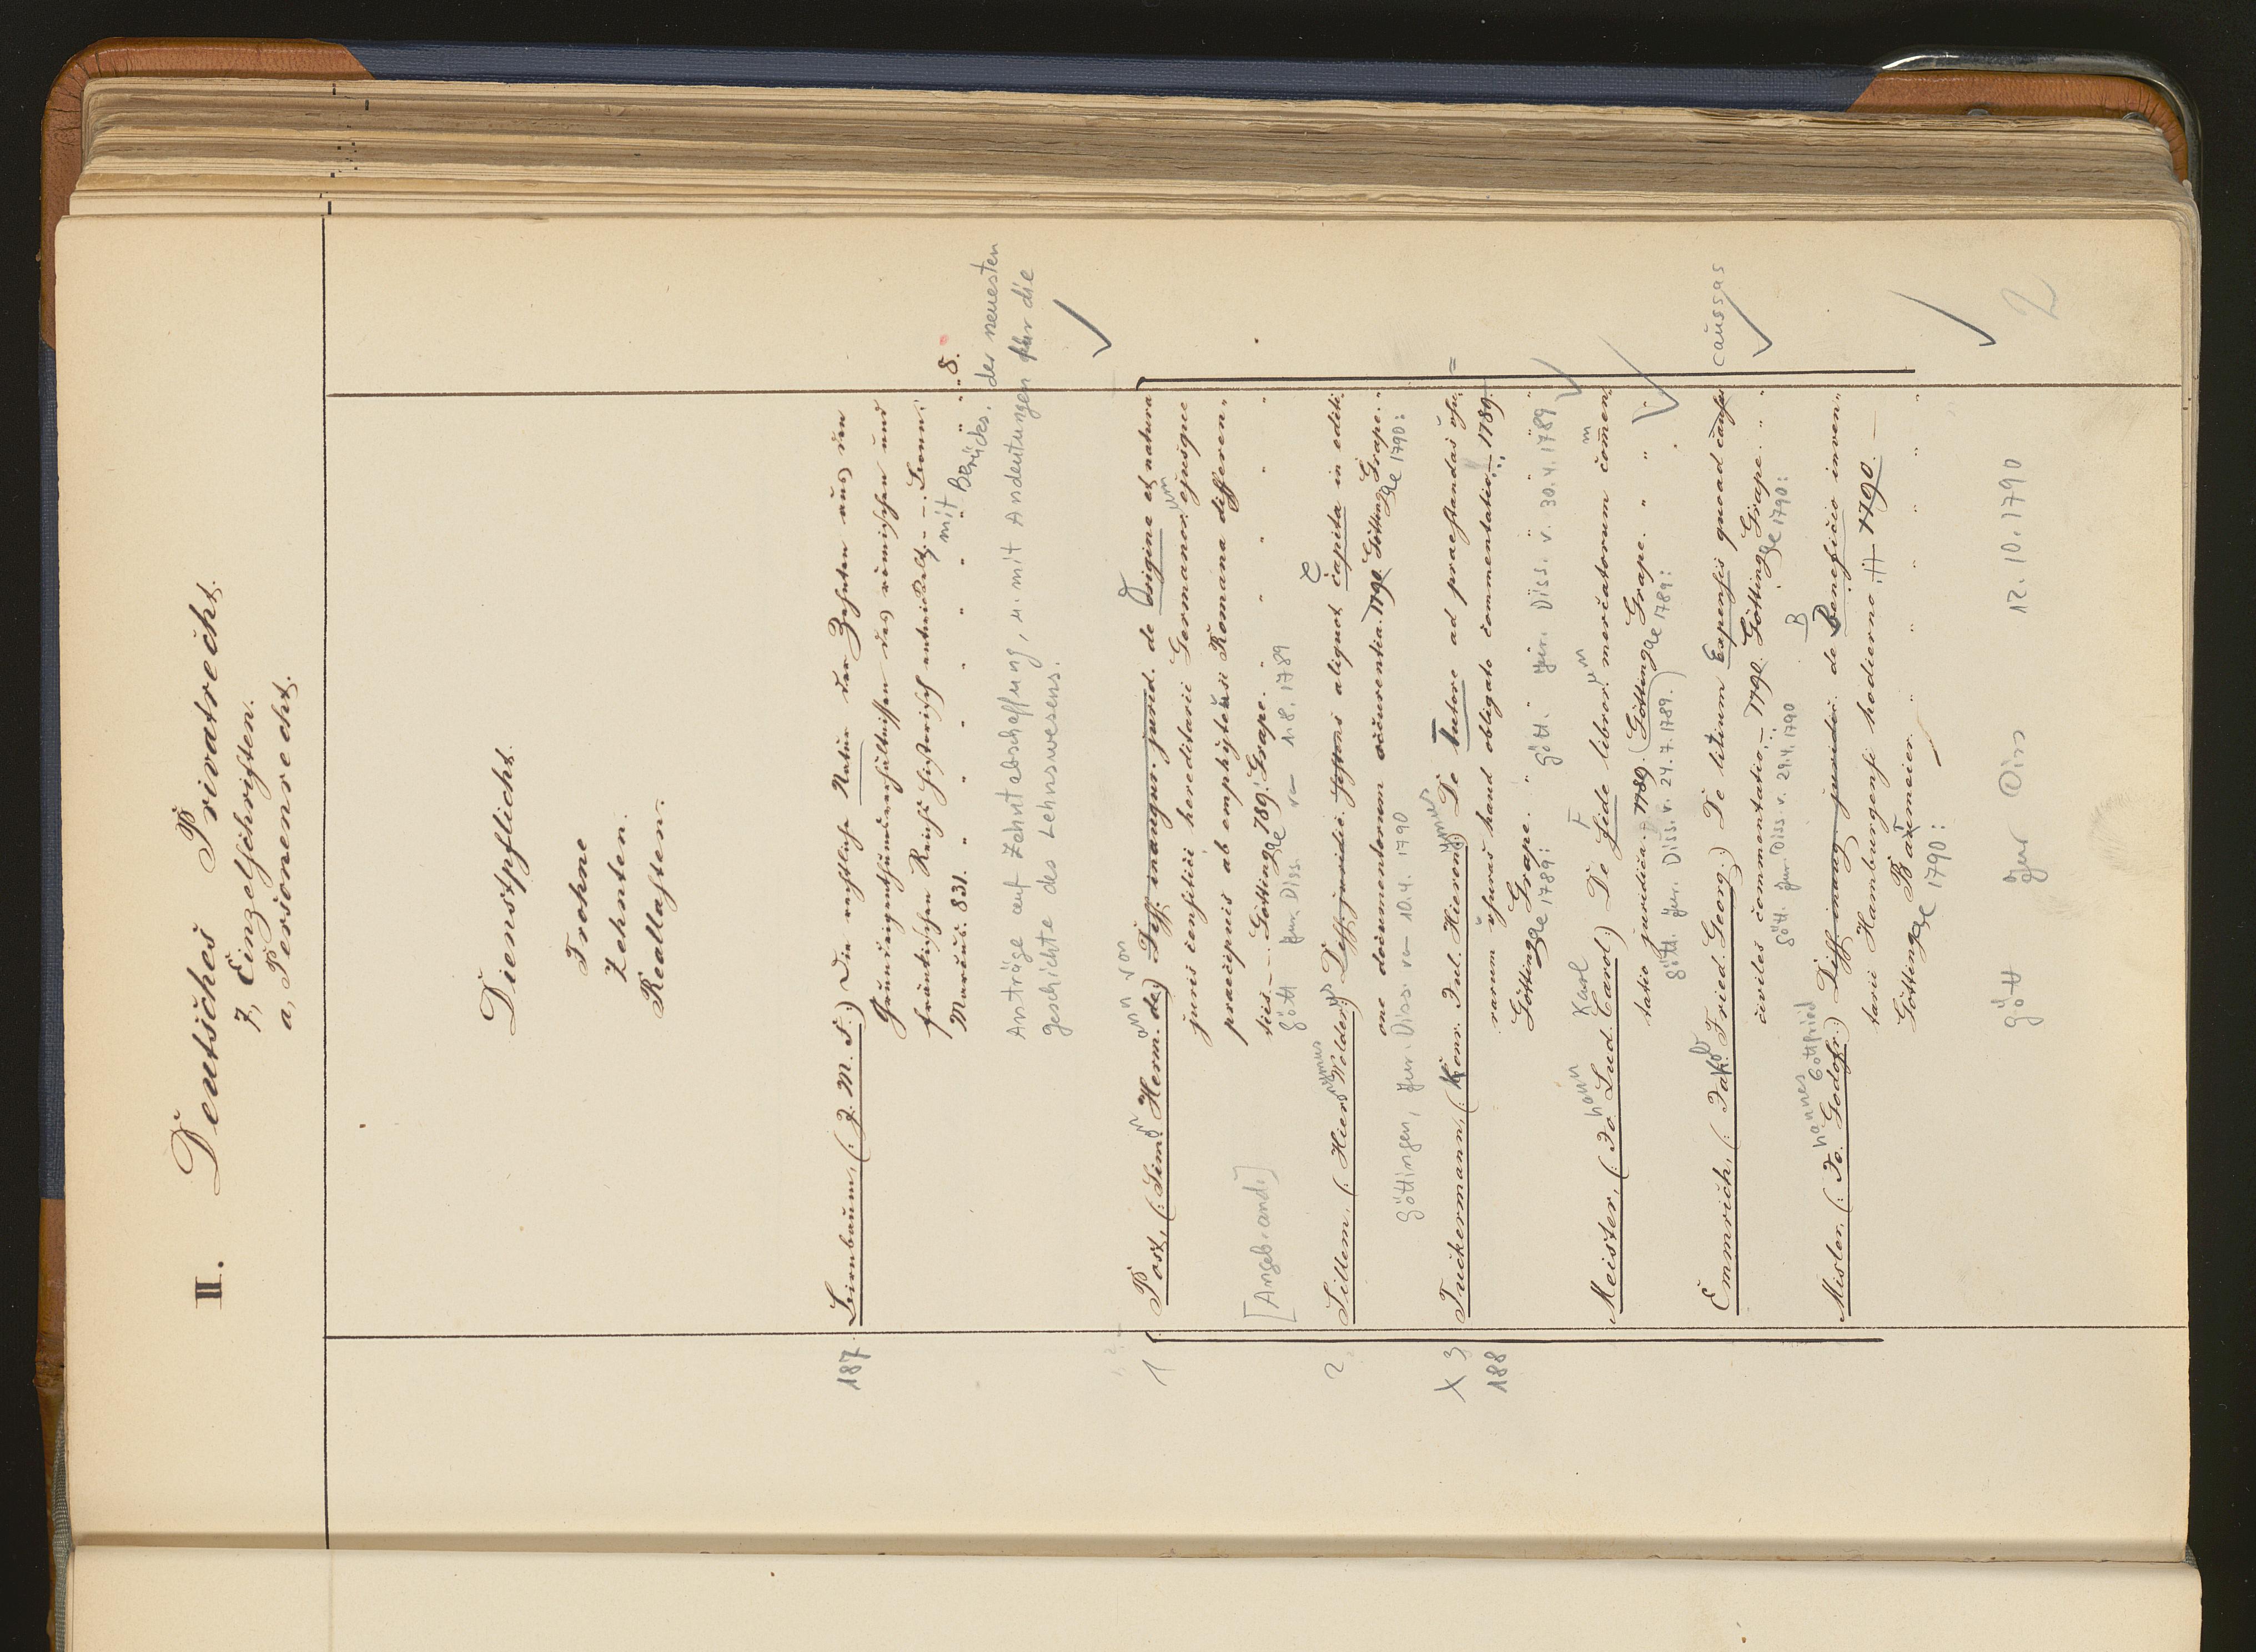 II. Deutsches Privatrecht.
7, Einzelschriften.
a, Personenrecht.
Dienstpflicht.
Frohne
Zehnten.
Reallasten.
187 Birnbaum, (: J. M. F.:) Die rechtliche Natur der Zehnten aus den
Grundeigenthumsverhältnissen des römischen und
fränkischen Reichs historisch entwickelt. – Bonn.
Marcus. 831. " " " " " " " 8.
mit Berücks. der neuesten
Anträge auf Zehntabschaffung, u. mit Andeutungen für die
Geschichte des Lehnswesens.
1 Post, (: Sim.on Herm.ann de:) von Diss. inaugur. jurid. de Origine et natura
juris censitici hereditarii Germanor.um ejusque
praecipuis ab emphyteusi Romana differen-
tiis. – Götting.ae 789. Grape. " " " " "
Gött Jur. Diss. v– 1.8. 1789
[Angeb. and.]
2 Sillem, (: Hieronymus Wolder.us:) Diss. juridic. sistens aliquot Capita in editi
one documentorum occurentia. 1790. Götting.ae Grape. "
1790:
Göttingen, Jur. Diss. v– 10.4. 1790
X 3 Tuckermann, (: Konr. Jul. Hieronymus:) De Tutore ad praestandas usu =
188 rarum usuras haud obligato commentatio. – 1789.
Götting.ae Grape. " Gött. Jur. Diss. v. 30.4.1789
1789:
Meister, (: Jo.hann Lud. Carol.:) Karl De Fide libror.um mercatorum commen
tatio juridica. 1789. (Götting.ae Grape. " " "
1789:
Gött. Jur. Diss. v. 24.7.1789.)
Emmrich, (: Jakob Fried. Georg.:) De litium Expensis quoad causas caussas
civiles commentatio. – 1790. Götting.ae Grape. " "
1790:
Gött. Jur. Diss. v. 29.4.1790
Misler, (: Jo.hannes Godofr.:) Gottfried Diss. inaug. juridic. de Beneficio inven-
tarii Hamburgensi hodierno. 1790. –
Götting.ae Barmeier " " " " "
1790:
Gött Jur Diss 12.10.1790
2